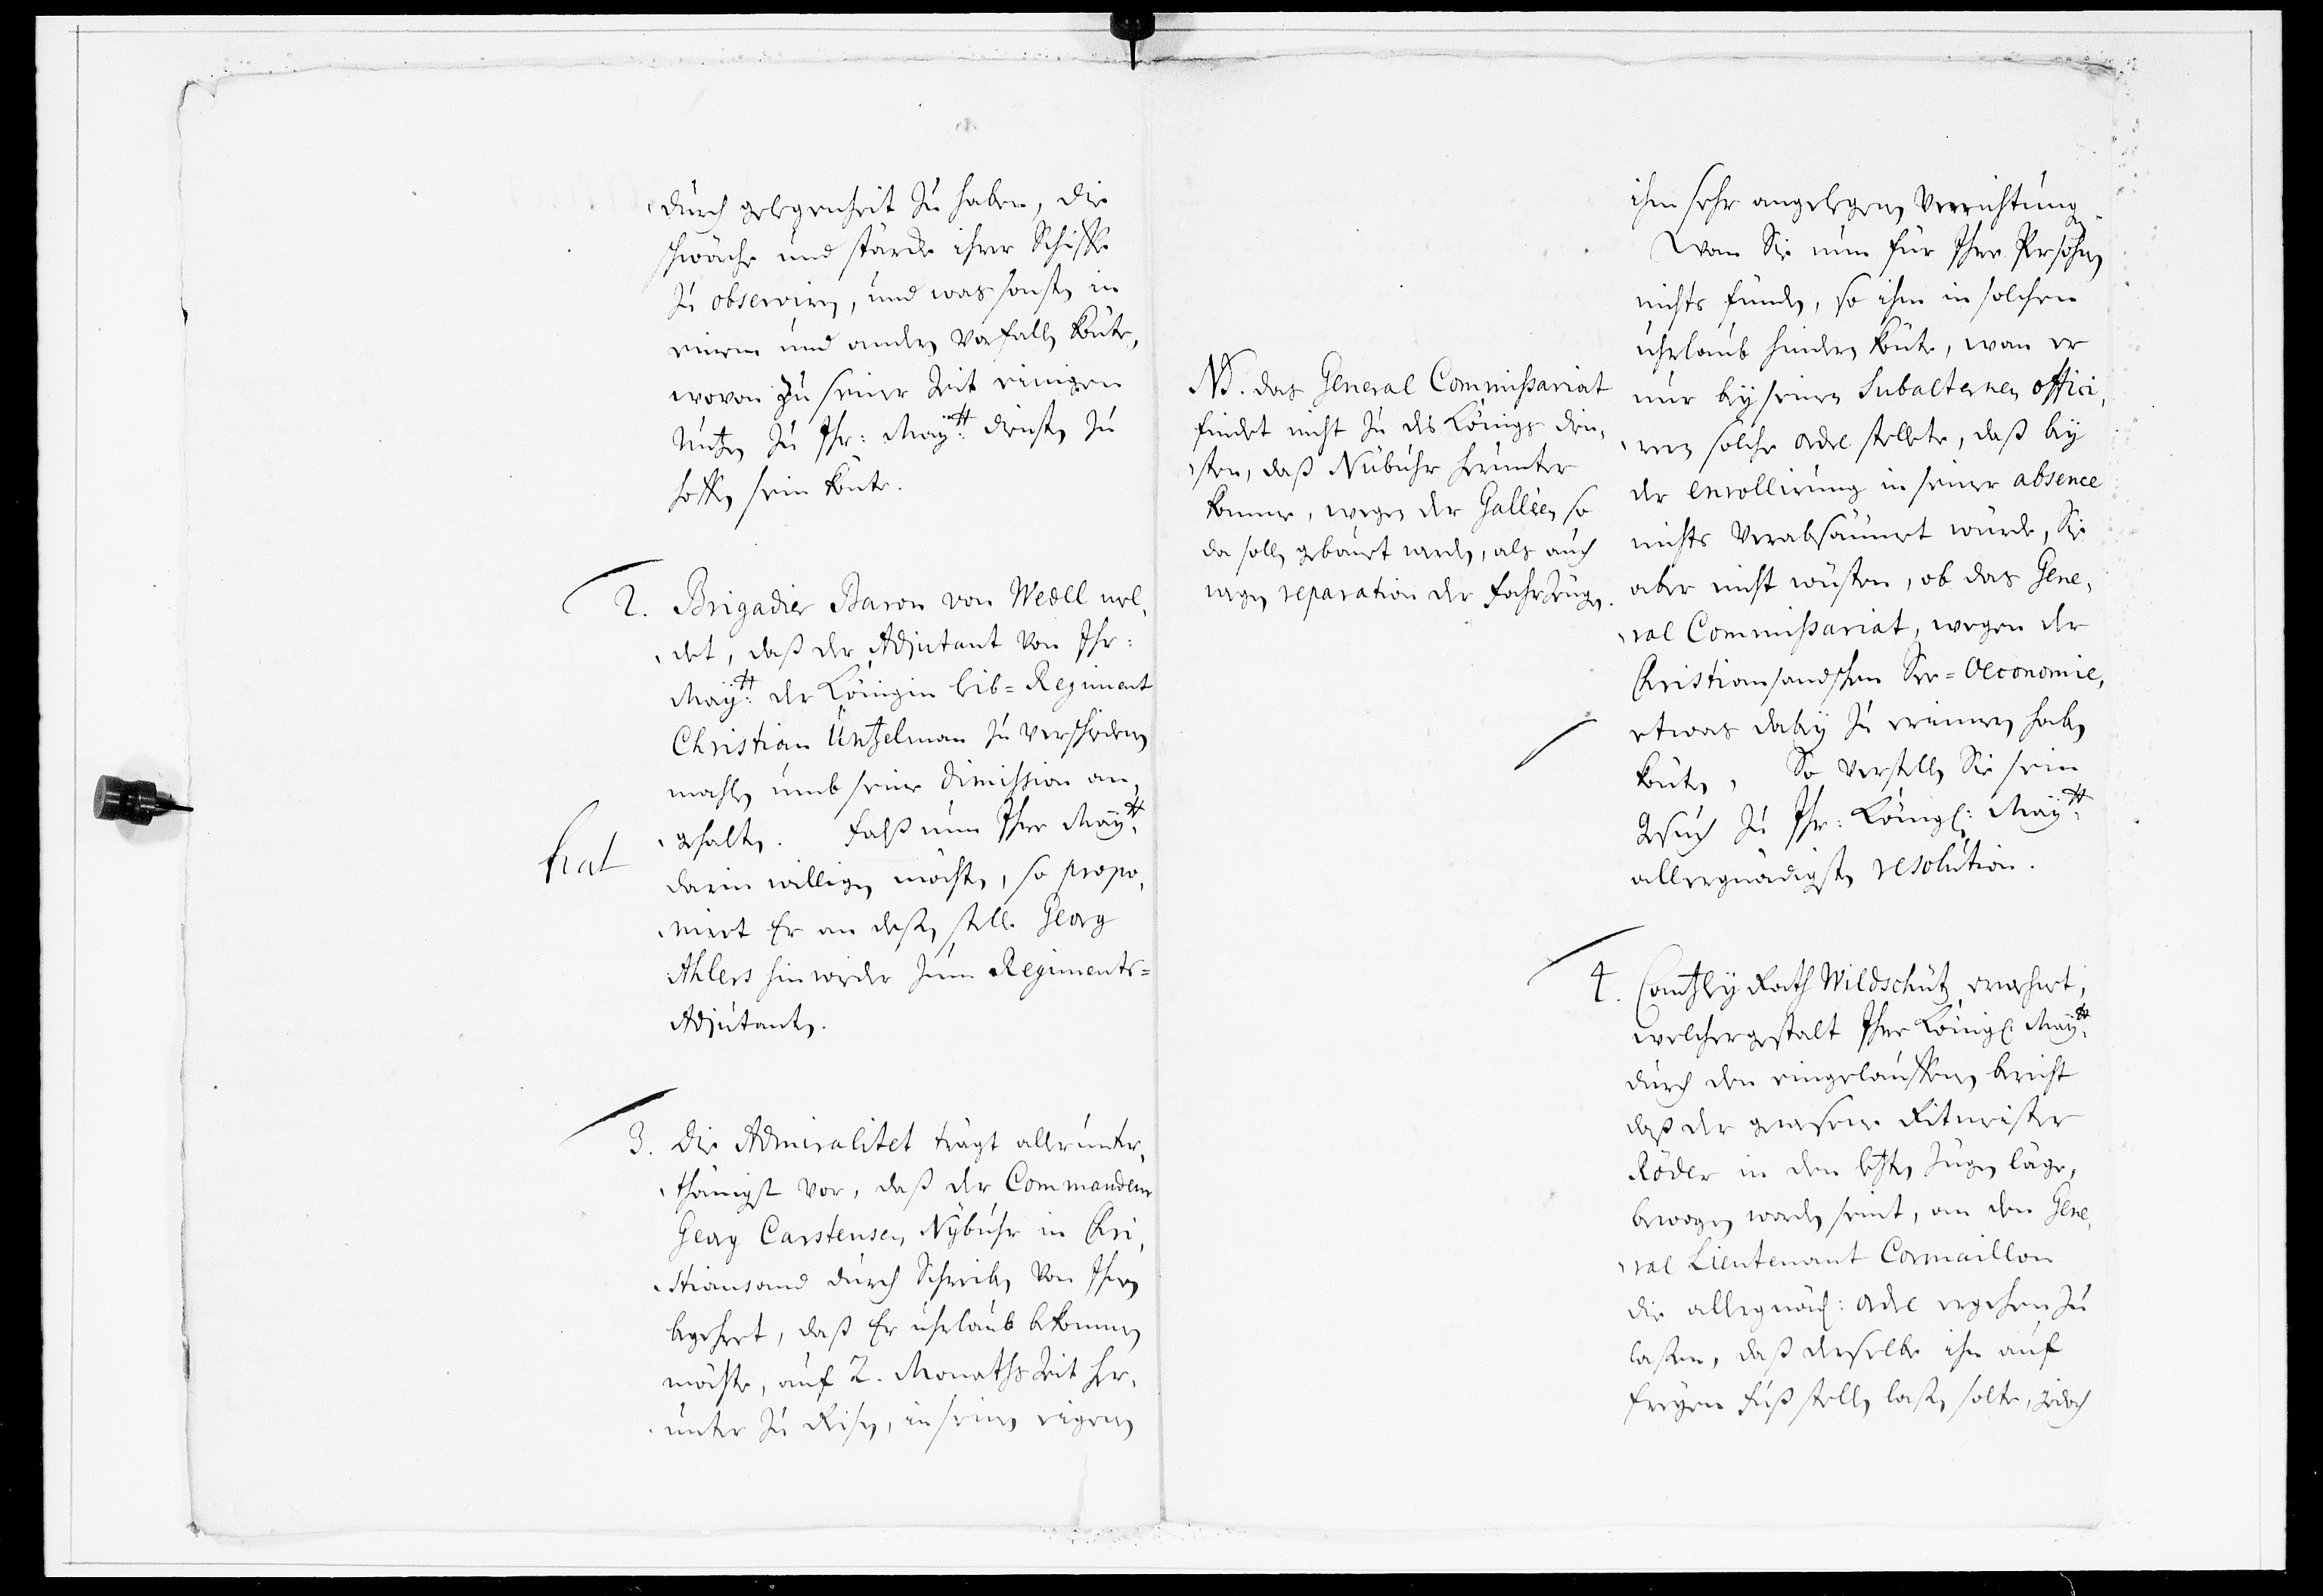 durch gelegenheit zu haben, die
schwäche und stärcke ihrer Schiffe
zu observiren, und was sonsten in
einem und andern Vorfallen könte,
wovon zu seiner Zeit einigen
Nutzen zu Ihr: May:tt diensten zu
hoffen sein könte.
2. Brigadier Baron von Wedell mel,
det, daß der Adjutant von Ihr:
May:tt der Königin Leib=Regiment
Christian Üntzelman zu verschiedenen
mahlen umb seine Dimission an,
gehalten. Falß nun Ihre May:tt
hat
darin willigen möchten, so propo,
niert Er an deßen stelle Georg
Ahlers hinwieder zum Regiments=
Adjutanten.
3. Die Admiralitet trägt allerunter,
thänigst vor, daß der Commandeur
Georg Carstensen Nÿbuhr in Chri,
stiansand durch Schreiben von Ihnen
begehret, daß Er uhrlaub bekommen
möchte, auf 2. Monaths Zeit her,
unter zu Reisen, in seinen eigenen
NB. das General Commissariat
findet nicht zu des Königs dien,
sten, daß Nübuhr herunter
komme, wegen der Galléen so
da sollen gebauet werden, als auch
wegen reparation der Fahrzeuge.
ihm sehr angelegenen Verrichtung
Wan Sie nun für Ihre Persohn
nichts funden, so ihm in solchem
uhrlaub hindern könte, wan er
nur beÿ seinen Subalternen offici,
ren solche ordre stellete, daß beÿ
der enrollirung in seiner absence
nichts verabsäumet würde, Sie
aber nicht wüsten, ob das Gene,
ral Commissariat, wegen der
Christiansandschen See=Oeconomie,
etwas dabeÿ zu erinnern haben
könte, So verstellen Sie sein
Gesuch zu Ihr: Königl: May:tt
allergnädigsten resolution.
4. Cantzleÿ Rath Wildschütz erwehnet,
welchergestalt Ihre Königl: May:tt
durch den eingelauffenen bericht
daß der gewesene Ritmeister
Röder in den letzten Zügen läge,
bewogen worden seint, an den Gene,
ral Lieutenant Cormaillon
die allergnäd: ordre ergehen zu
laßen, daß derselbe ihn auf
freÿen Fuß stellen laßen solte, jedoch